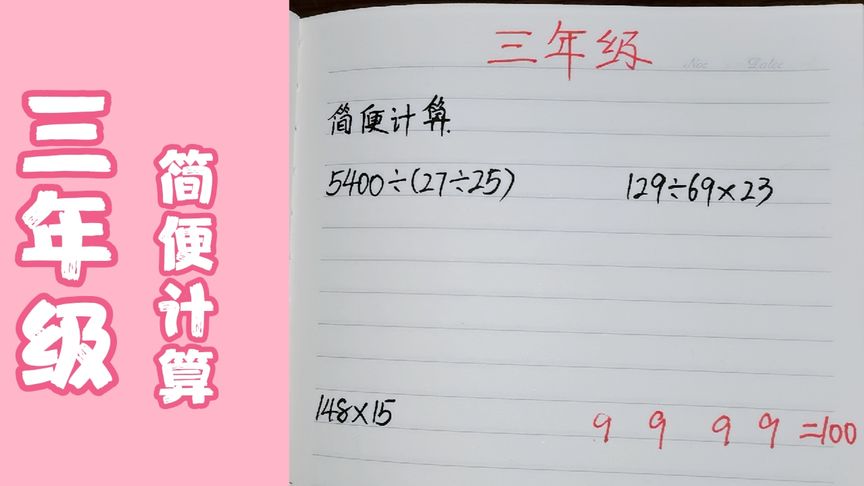 三年级
简便计算
三年级
No: Date:
简便计算.
5400÷(27÷25)
129÷69×23
148×15
9 9 9 9 =100